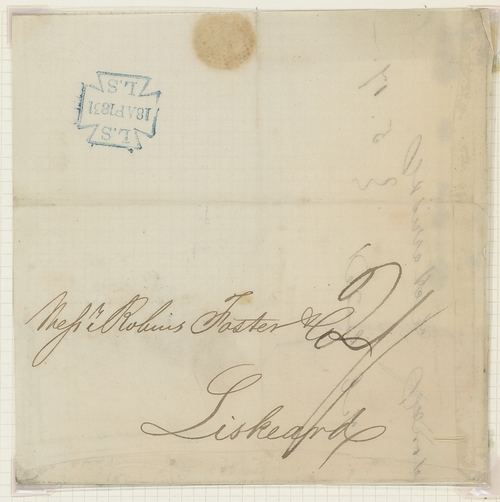 L.S
18AP1831
L.S
Messrs Robins Foster & Co
Liskeard
2/